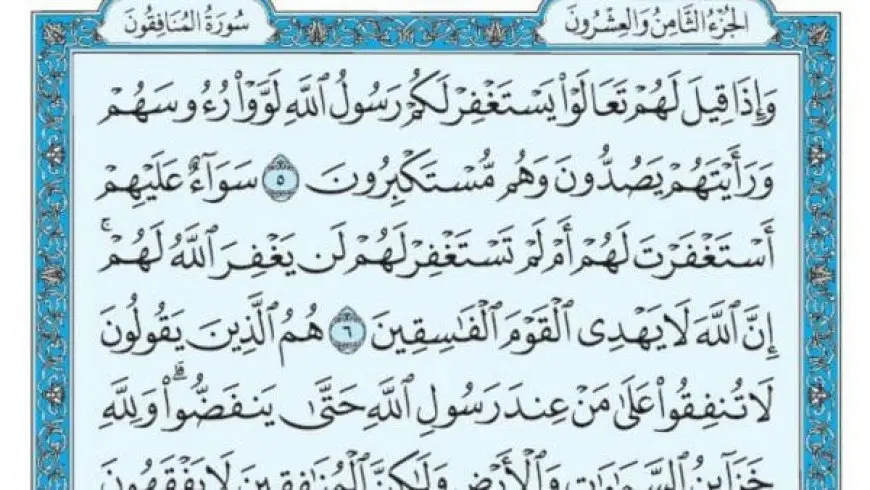 الجُزْءُ الثَّامِنُ وَالعِشْرُونَ
سُورَةُ المُنَافِقُونَ
وَإِذَا قِيلَ لَهُمْ تَعَالَوْا۟ يَسْتَغْفِرْ لَكُمْ رَسُولُ ٱللَّهِ لَوَّوْا۟ رُءُوسَهُمْ
وَرَأَيْتَهُمْ يَصُدُّونَ وَهُم مُّسْتَكْبِرُونَ ٥ سَوَآءٌ عَلَيْهِمْ
أَسْتَغْفَرْتَ لَهُمْ أَمْ لَمْ تَسْتَغْفِرْ لَهُمْ لَن يَغْفِرَ ٱللَّهُ لَهُمْ ۚ
إِنَّ ٱللَّهَ لَا يَهْدِى ٱلْقَوْمَ ٱلْفَٰسِقِينَ ٦ هُمُ ٱلَّذِينَ يَقُولُونَ
لَا تُنفِقُوا۟ عَلَىٰ مَنْ عِندَ رَسُولِ ٱللَّهِ حَتَّىٰ يَنفَضُّوا۟ ۗ وَلِلَّهِ
خَزَآئِنُ ٱلسَّمَٰوَٰتِ وَٱلْأَرْضِ وَلَٰكِنَّ ٱلْمُنَٰفِقِينَ لَا يَفْقَهُونَ